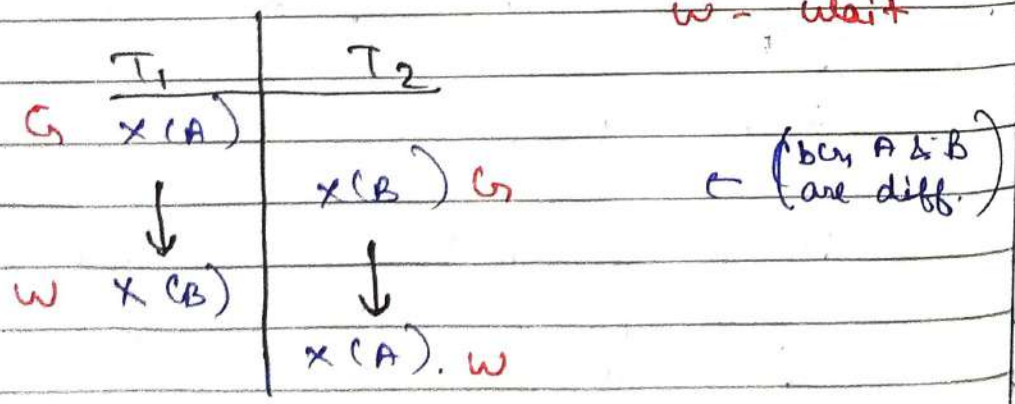 W - Wait
T1 T2
G X(A)
X(B) G ← (bcz A & B
are diff.)
↓
W X(B) ↓
X(A). W